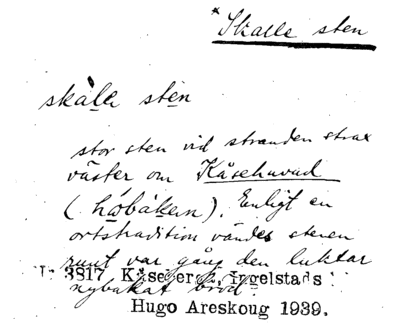 * Skalle sten
skàle sten
stor sten vid stranden strax
väster om Kåsehuvud
(håbåkern). Enligt en
ortstradition vändes stenen
runt var gång den luktar
nybakat bröd.
3817 Kåseber Ingelstads
Hugo Areskoug 1939.